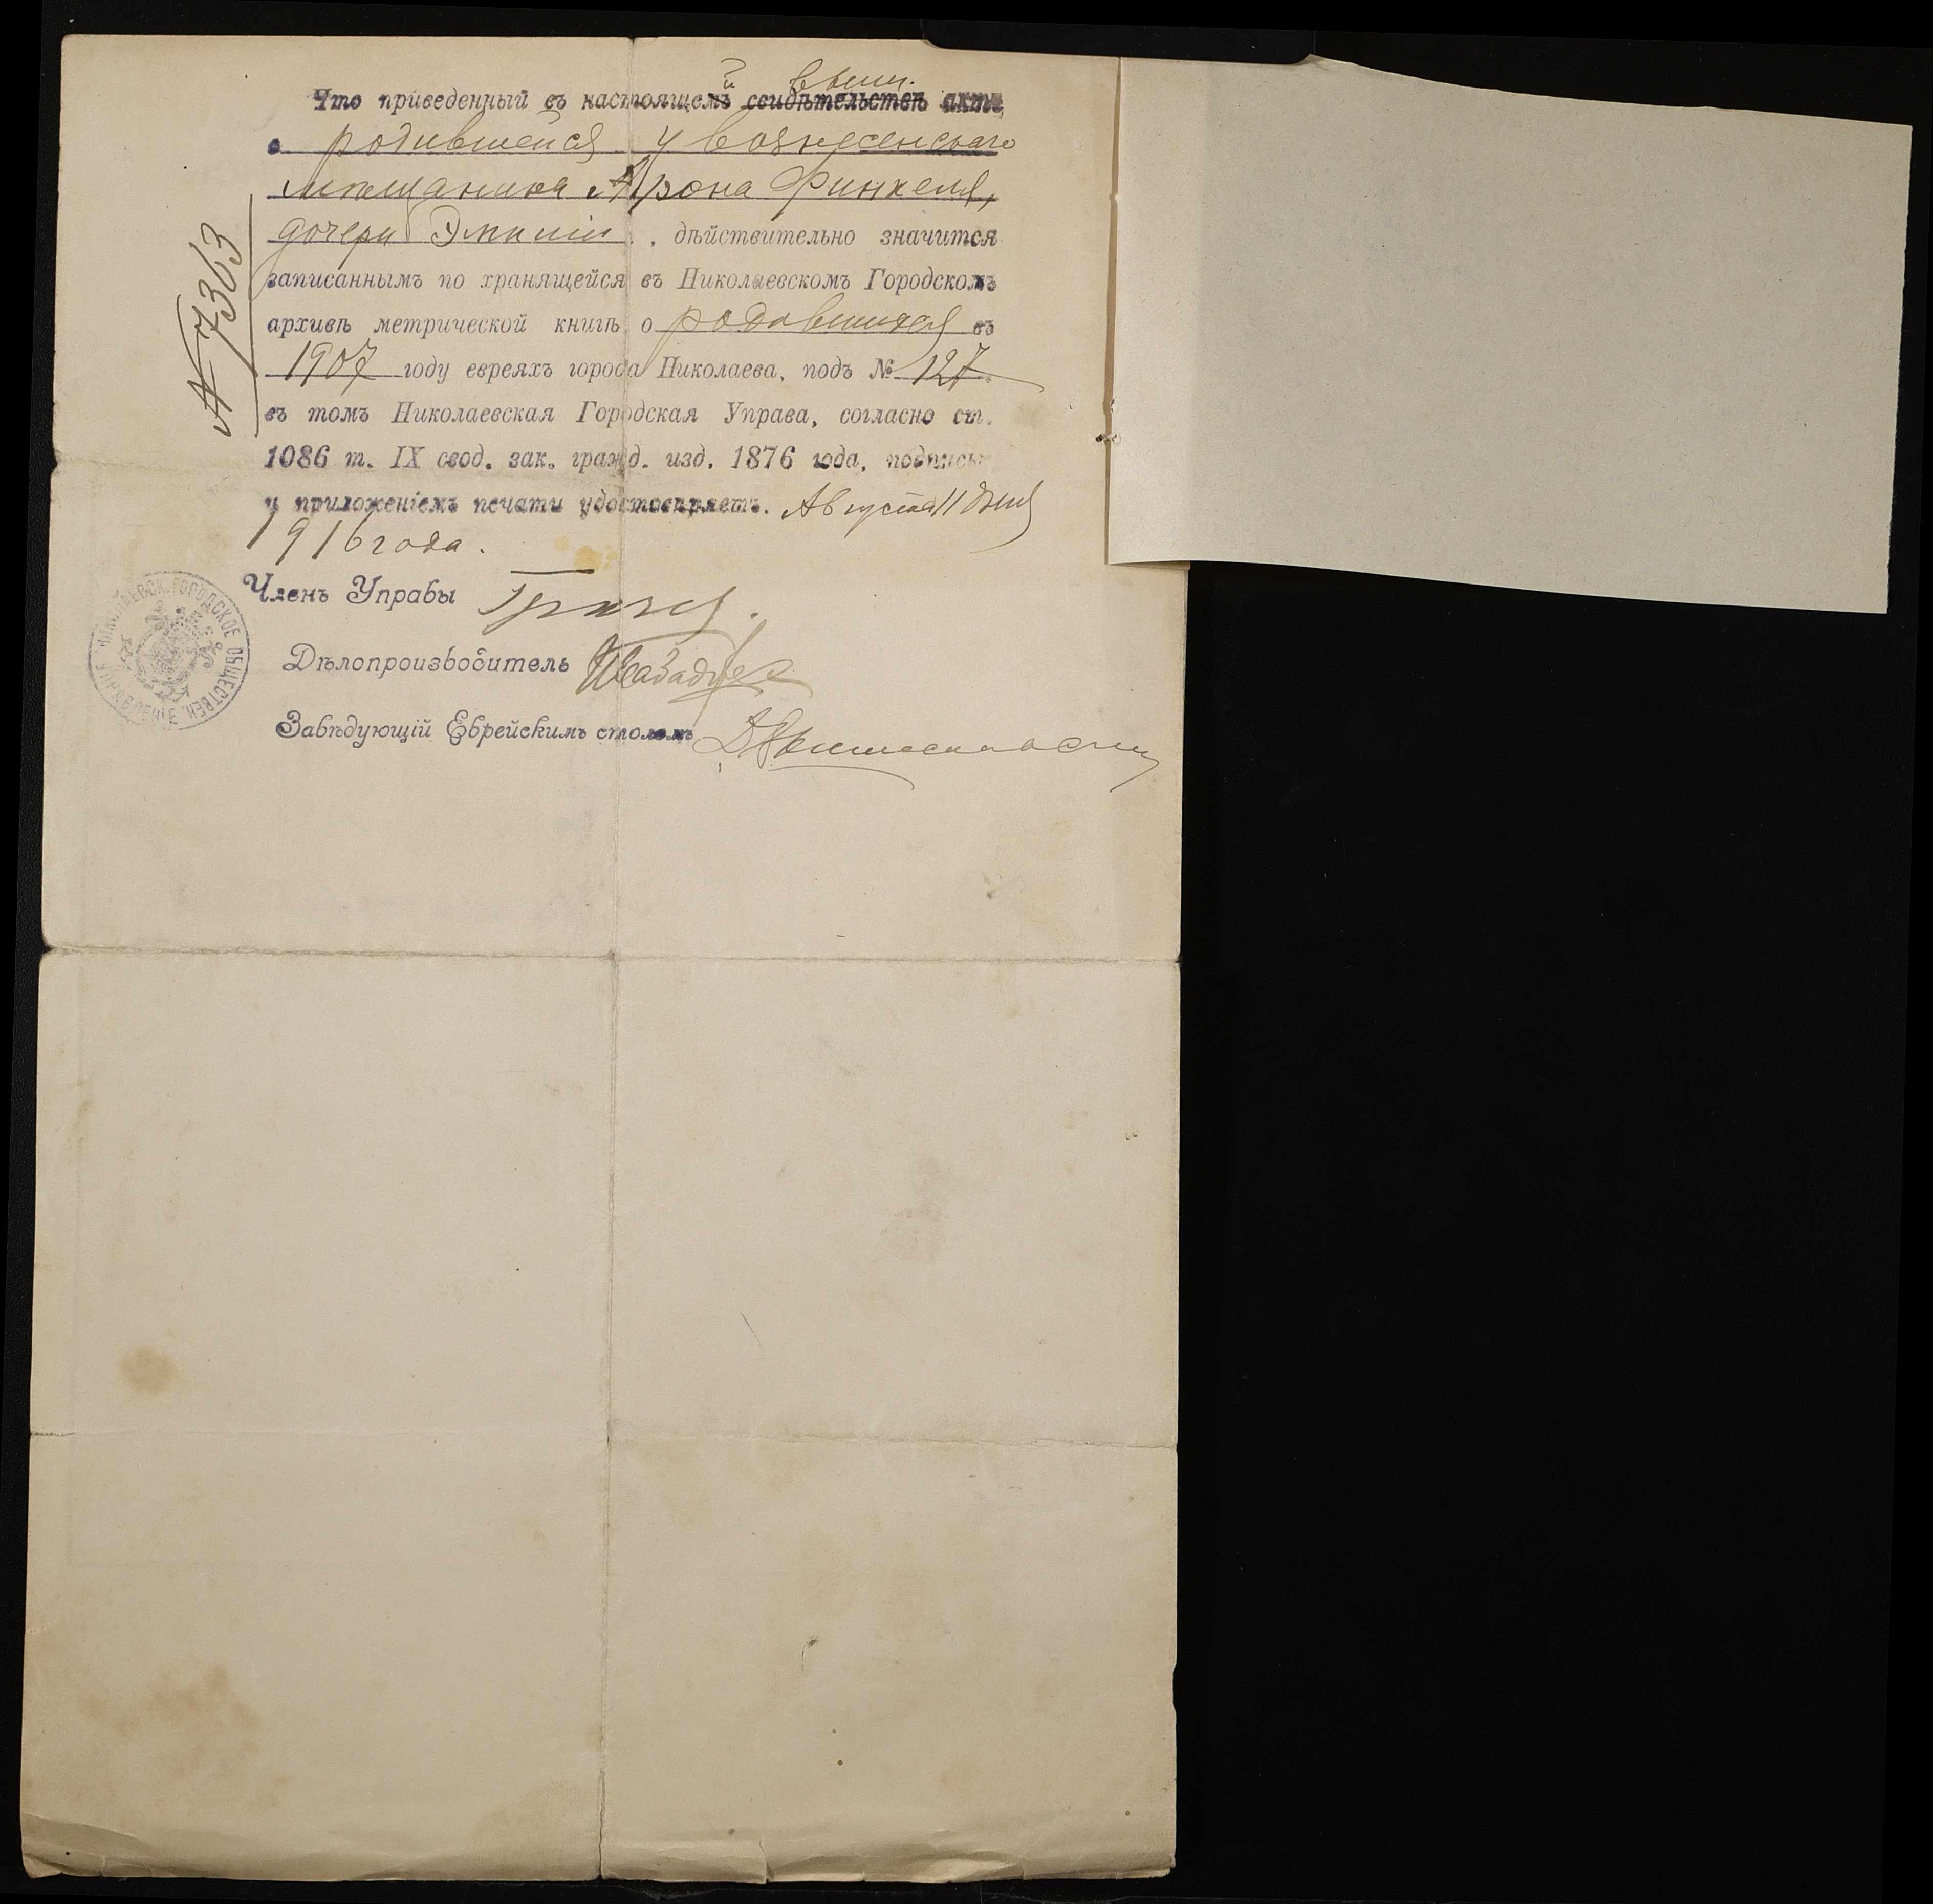 Что приведенный въ настоящемъ свидѣтельствѣ актъ,
о родившейся у вознесенскаго
мѣщанина Арона Финкеля,
дочери Эмиліи, дѣйствительно значится
записаннымъ по хранящейся въ Николаевскомъ Городскомъ
архивѣ метрической книгѣ о родившихся въ
1907 году евреяхъ города Николаева, подъ № 127
въ томъ Николаевская Городская Управа, согласно ст.
1086 т. IX свод. зак. гражд. изд. 1876 года, подписью
и приложеніемъ печати удостовѣряетъ. Августа 11 дня
1916 года.
№ 7363
Членъ Управы
Дѣлопроизводитель
Завѣдующій Еврейскимъ столомъ
НИКОЛАЕВСК. ГОРОДСКОЕ ОБЩЕСТВЕН. УПРАВЛЕНІЕ